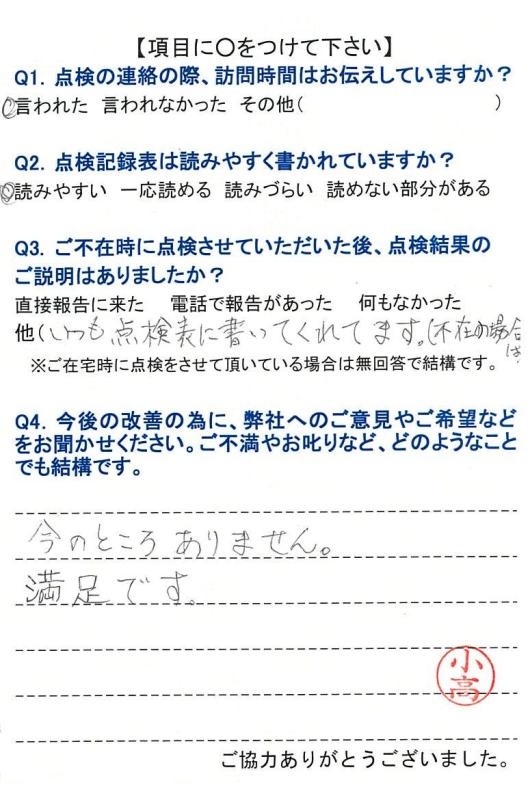 【項目に〇をつけて下さい】
Q1. 点検の連絡の際、訪問時間はお伝えしていますか？
言われた 言われなかった その他( )
Q2. 点検記録表は読みやすく書かれていますか？
読みやすい 一応読める 読みづらい 読めない部分がある
Q3. ご不在時に点検させていただいた後、点検結果の
ご説明はありましたか？
直接報告に来た 電話で報告があった 何もなかった
他(いつも点検表に書いてくれてます。(不在の場合は
※ご在宅時に点検をさせて頂いている場合は無回答で結構です。
Q4. 今後の改善の為に、弊社へのご意見やご希望など
をお聞かせください。ご不満やお叱りなど、どのようなこと
でも結構です。
今のところありません。
満足です。
小高
ご協力ありがとうございました。